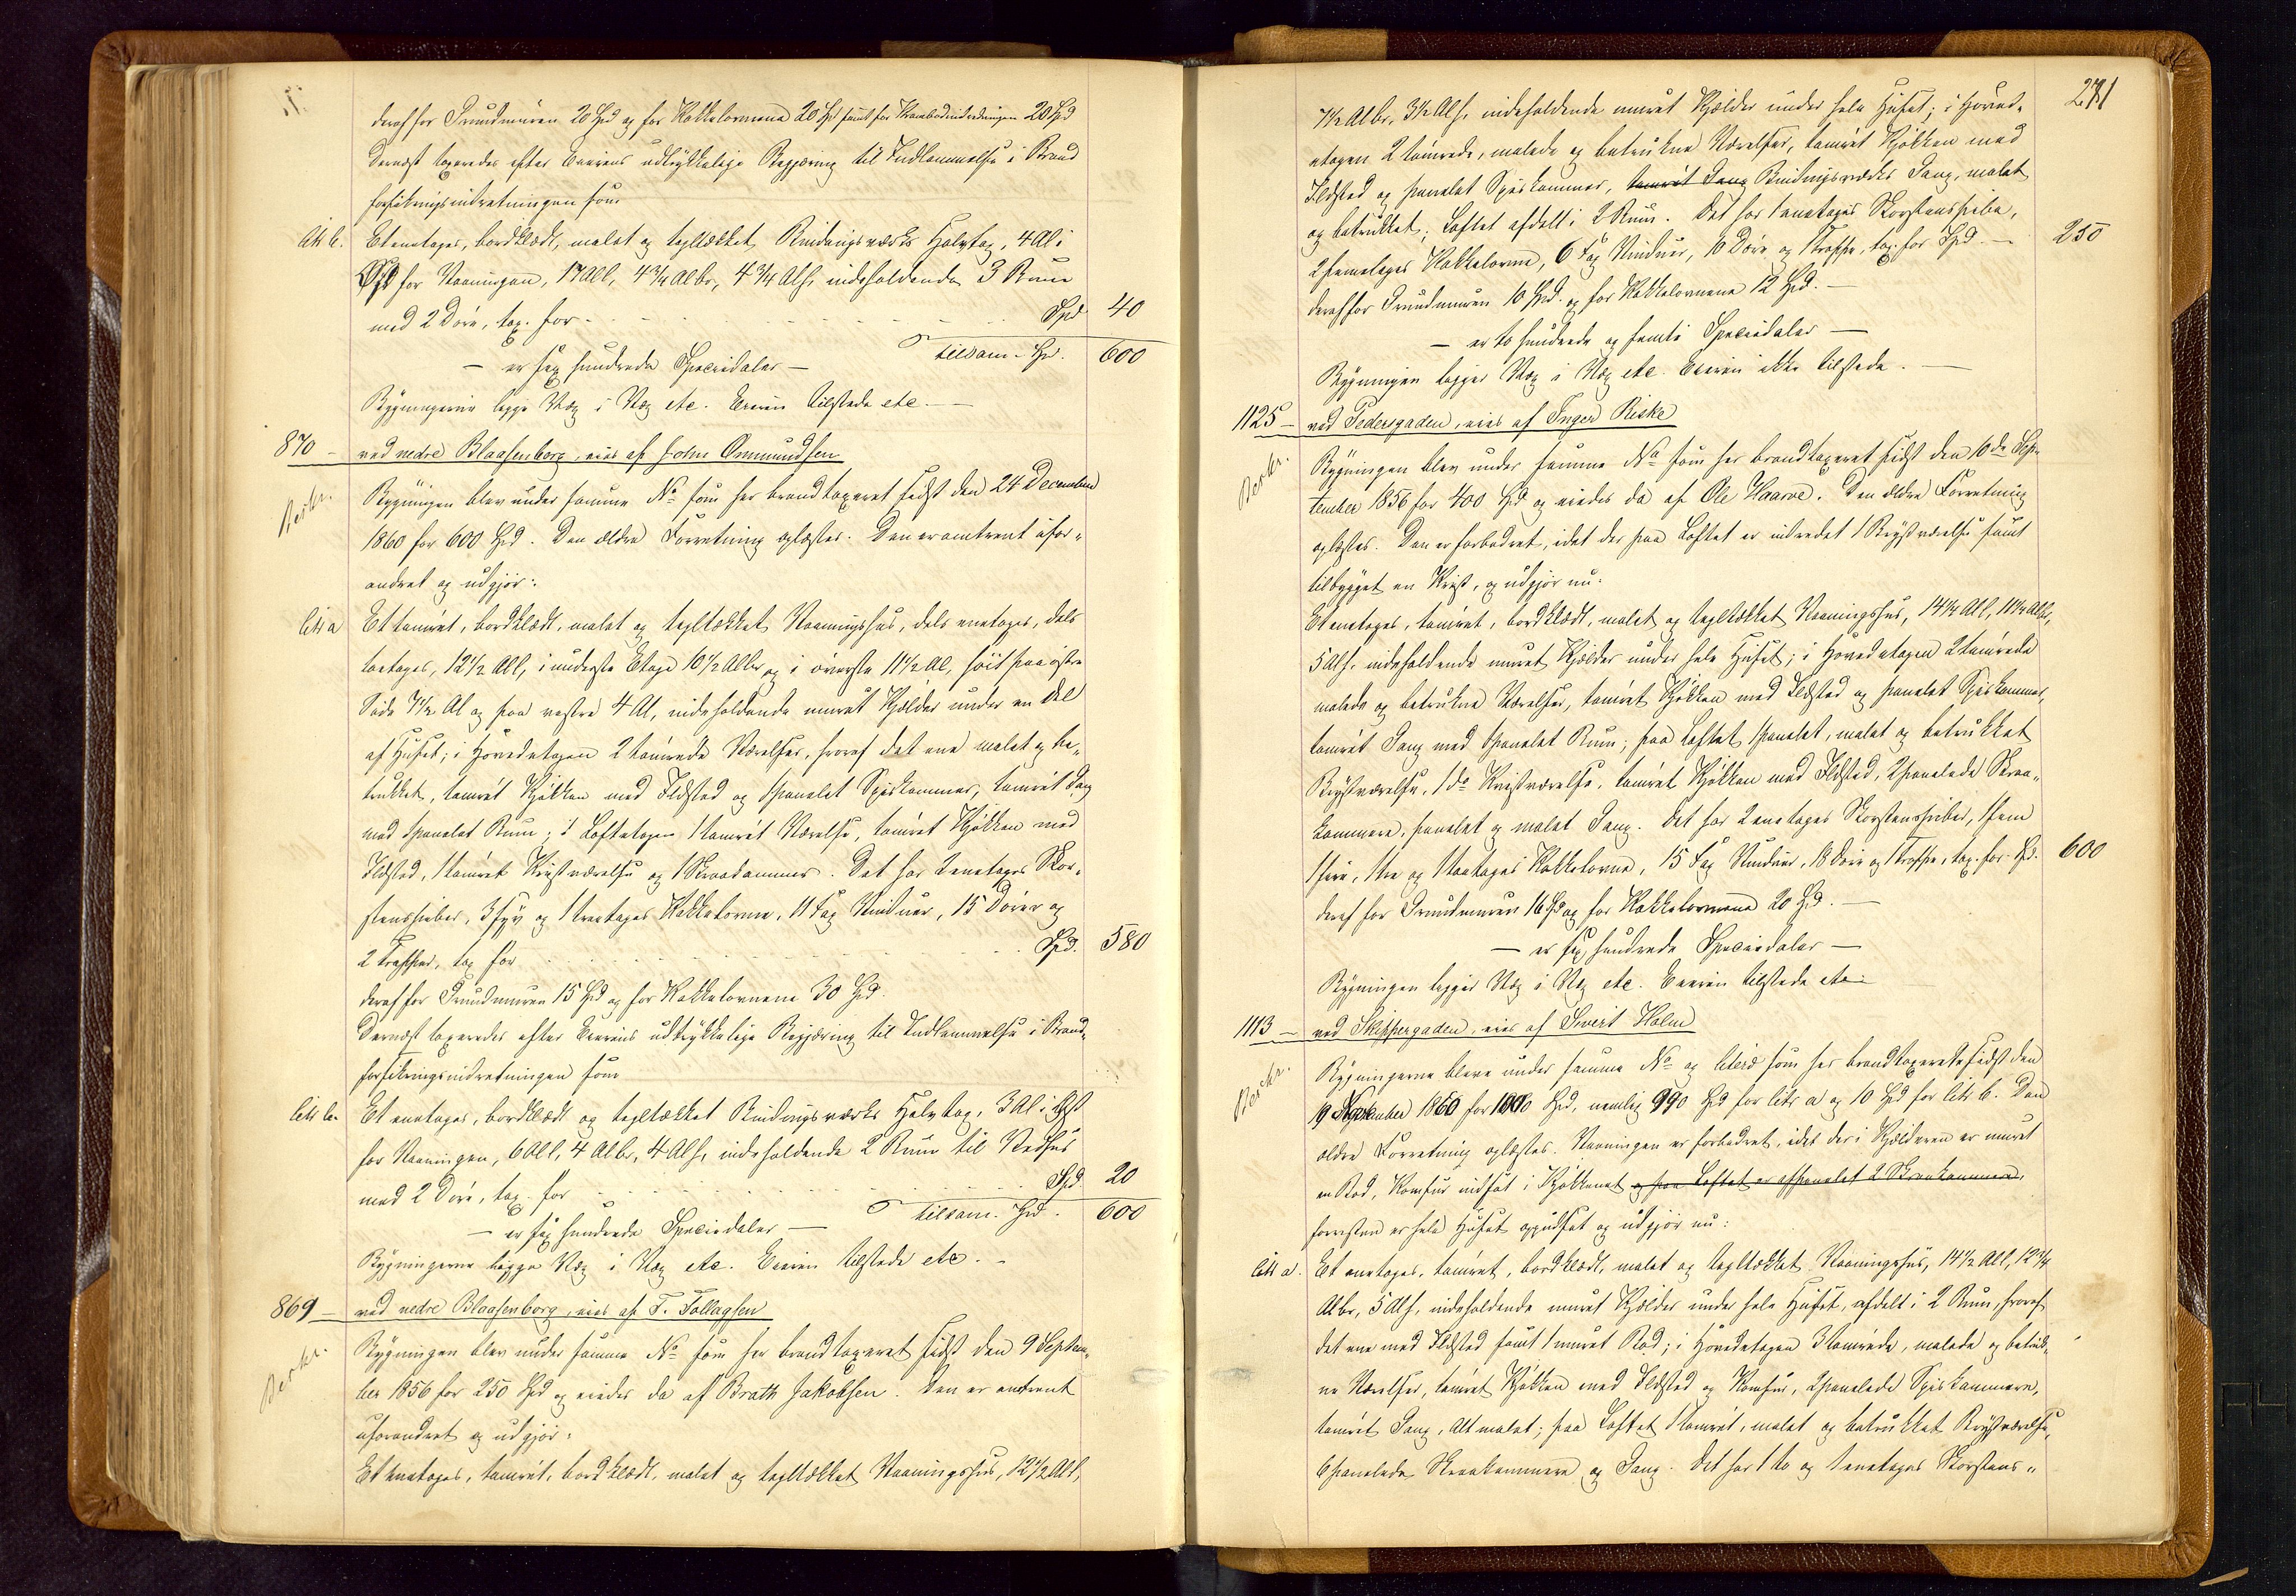 deraf for Grundmuren 20 Spd og for Kakkelovnene 20 Spd samt for Krambodindredningen 20 Spd
Dernæst taxeredes efter Eierens udtrykkelige Begjæring til Indlemmelse i Brand
forsikringsindretningen som
litr b. Et enetages, bordklædt, malet og tegltækket Bindingsværks Halvtag, 4 Al i
Øst for Vaaningen, 17 All, 4 3/4 Albr, 4 3/4 Alh, indeholdende 3 Rum
med 2 Döre, tax. for - Spd 40
tilsam - Spd. 600
- er sex hundrede Speciedaler -
Bygningerne ligge Væg i Væg etc. Eieren tilstede etc. -
870 - ved nedre Blaasenborg, eies af John Ommundsen
Beskr. Bygningen blev under samme No som her brandtaxeret sidst den 24 December
1860 for 600 Spd. Den ældre Forretning oplæstes. Den er omtrent ufor-
andret og udgjör:
litr a Et tømret, bordklædt, malet og tegltækket Vaaningshus, dels enetages, dels
toetages, 12 1/2 All, i underste Etage 10 1/2 Albr og i överste 11 1/2 Al, höit paa östre
Side 7 1/2 Al og paa vestre 4 Al, indeholdende muret Kjælder under en Del
af Huset; i Hovedetagen 2 tömrede Værelser, hvoraf det ene malet og be-
trukket, tömret Kjökken med Ildsted og 1 panelet Spiskammer, tömret Gang
med 1 panelet Rum; i Loftetagen 1 tömret Værelse, tömret Kjökken med
Ildsted, 1 tömret Kvistværelse og 1 Skraakammer. Det har 2 enetages Skor-
stenspiber, 3 fyr og 1 treetages Kakkelovne, 11 Fag Vinduer, 15 Dörer og
2 Trapper, tax for - Spd. 580
deraf for Grundmuren 15 Spd og for Kakkelovnene 30 Spd.
Dernæst taxeredes efter Eierens udtrykkelige Begjæring til Indlemmelse i Brand-
forsikringsindretningen som
litr b. Et enetages, bordklædt og tegltækket Bindingsværks Halvtag, 3 Al i Öst
for Vaaningen, 6 All, 4 Albr, 4 Alh, indeholdende 2 Rum til Vedhus
med 2 Döre, tax. for - Spd 20
tilsam. Spd. 600
- er sex hundrede Speciedaler -
Bygningerne ligge Væg i Væg etc. Eieren tilstede etc. -
869 - ved nedre Blaasenborg, eies af T. Tollagsen
Beskr. Bygningen blev under samme No som her brandtaxeret sidst den 9 Septem-
ber 1856 for 250 Spd og eiedes da af Brath Jakobsen. Den er omtrent
uforandret og udgjör:
Et enetages, tömret, bordklædt, malet og tegltækket Vaaningshus, 12 1/2 All,
271
7 1/2 Albr, 3 1/2 Alh, indeholdende muret Kjælder under hele Huset; i Hoved-
etagen 2 tömrede, malede og betrukne Værelser, tömret Kjökken med
Ildsted og panelet Spiskammer, tömret Gang Bindingsværks Gang, malet
og betrukket; Loftet afdelt i 2 Rum. Det har 1 enetages Skorstenspibe,
2 femetages Kakkelovne, 6 Fag Vinduer, 10 Döre og 1 Trappe, tax. for Spd. - 250
deraf for Grundmuren 10 Spd. og for Kakkelovnene 12 Spd. -
- er to hundrede og femti Speciedaler -
Bygningen ligger Væg i Væg etc. Eieren ikke tilstede. -
1125 - ved Pedersgaden, eies af Inger Riske
Beskr. Bygningen blev under samme No som her brandtaxeret sidst den 6de Sep-
tember 1856 for 400 Spd og eiedes da af Ole Haarve. Den ældre Forretning
oplæstes. Den er forbedret, idet der paa Loftet er indredet 1 Brystværelse samt
tilbygget en Kvist, og udgjör nu:
Et enetages, tömret, bordklædt, malet og tegltækket Vaaningshus, 14 1/4 All, 11 1/4 Albr,
5 Alh, indeholdende muret Kjælder under hele Huset; i Hovedetagen 2 tömrede
malede og betrukne Værelser, tömret Kjökken med Ildsted og panelet Spiskammer,
tömret Gang med 1 panelet Rum; paa Loftet 1 panelet, malet og betrukket
Brystværelse, 1 do Kvistværelse, tömret Kjökken med Ildsted, 2 panelede Skraa-
kammere, panelet og malet Gang. Det har 2 enetages Skorstenspiber, 1 fem
1 fire, 1 tre og 1 toetages Kakkelovne, 15 Fag Vinduer, 18 Döre og 1 Trappe, tax. for Spd. 600
deraf for Grundmuren 16 Spd og for Kakkelovnene 20 Spd. -
- er sex hundrede Speciedaler -
Bygningen ligger Væg i Væg etc. Eieren tilstede etc.
1113 - ved Skippergaden, eies af Sivert Holm
Beskr. Bygningerne bleve under samme No og litera som her brandtaxerede sidst den
19 September 1860 for 1000 Spd, nemlig 990 Spd for litr a og 10 Spd for litr b. Den
ældre Forretning oplæstes. Vaaningen er forbedret, idet der i Kjælderen er muret
en Bod, Komfur indsat i Kjökkenet og paa Loftet er afpanelet 2 Skraakammere,
forresten er hele Huset oppudset og udgjör nu:
litr a. Et enetages, tömret, bordklædt, malet og tegltækket Vaaningshus, 14 1/2 All, 12 3/4
Albr, 5 Alh, indeholdende muret Kjælder under hele Huset, afdelt i 2 Rum, hvoraf
det ene med Ildsted samt 1 muret Bod; i Hovedetagen 3 tömrede, malede og betruk-
ne Værelser, tömret Kjökken med Ildsted og Komfur, 2 panelede Spiskammere,
tömret Gang, Alt malet; paa Loftet 1 tömret, malet og betrukket Brystværelse,
6 panelede Skraakammere og Gang. Det har 1 to og 1 enetages Skorstens-